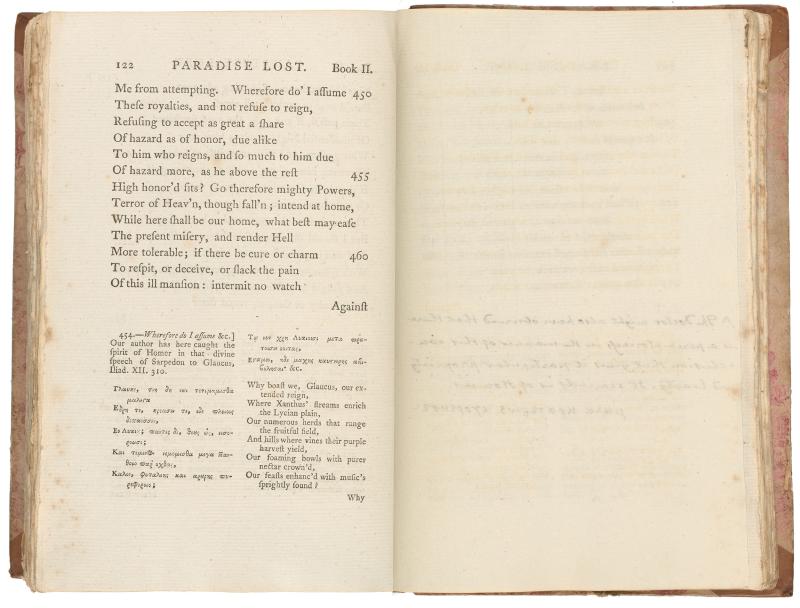 122 PARADISE LOST. Book II.
Me from attempting. Wherefore do' I aſſume 450
Theſe royalties, and not refuſe to reign,
Refuſing to accept as great a ſhare
Of hazard as of honor, due alike
To him who reigns, and ſo much to him due
Of hazard more, as he above the reſt 455
High honor'd ſits? Go therefore mighty Powers,
Terror of Heav'n, though fall'n; intend at home,
While here ſhall be our home, what beſt may eaſe
The preſent miſery, and render Hell
More tolerable; if there be cure or charm 460
To reſpit, or deceive, or ſlack the pain
Of this ill manſion: intermit no watch
Againſt
454.—Wherefore do I aſſume &c.]
Our author has here caught the
ſpirit of Homer in that divine
ſpeech of Sarpedon to Glaucus,
Iliad. XII. 310.
Γλαυκε, τιη δε νωι τετιμημεσθα
μαλιςα
Εδρη τε, κρεασιν τε, ιδε πλειοις
δεπαεσσιν,
Εν Λυκιη; παντες δε, θεους ως, εισο-
ροωσι;
Και τεμενος νεμομεσθα μεγα Ξαν-
θοιο παρ' οχθας,
Καλον, φυταλιης και αρουρης πυ-
ροφοροιο;
Τῳ νυν χρη Λυκιοισι μετα πρω-
τοισιν εοντας,
Εςαμεν, ηδε μαχης καυςειρης αντι-
βολησαι. &c.
Why boaſt we, Glaucus, our ex-
tended reign,
Where Xanthus' ſtreams enrich
the Lycian plain,
Our numerous herds that range
the fruitful field,
And hills where vines their purple
harveſt yield,
Our foaming bowls with purer
nectar crown'd,
Our feaſts enhanc'd with muſic's
ſprightly ſound?
Why